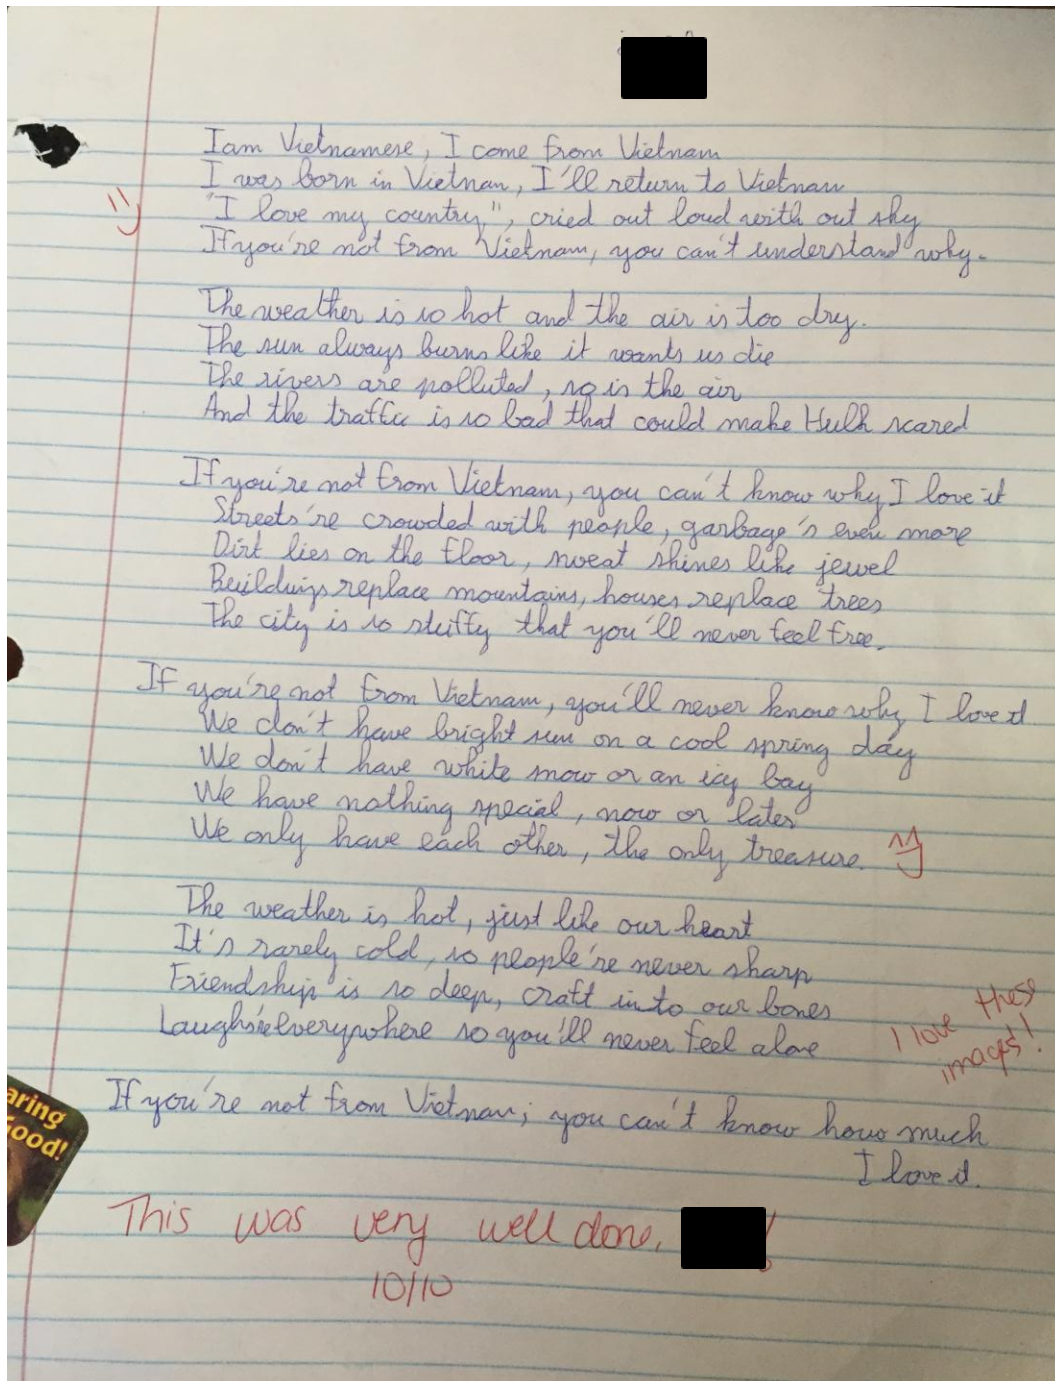 I am Vietnamese, I come from Vietnam
I was born in Vietnam, I'll return to Vietnam
"I love my country", cried out loud with out shy
If you're not from Vietnam, you can't understand why.
The weather is so hot and the air is too dry.
The sun always burns like it wants us die
The rivers are polluted, so is the air
And the traffic is so bad that could make Hulk scared
If you're not from Vietnam, you can't know why I love it
Streets're crowded with people, garbage's even more
Dirt lies on the floor, sweat shines like jewel
Buildings replace mountains, houses replace trees
The city is so stuffy that you'll never feel free.
If you're not from Vietnam, you'll never know why I love it
We don't have bright sun on a cool spring day
We don't have white snow or an icy bay
We have nothing special, now or later
We only have each other, the only treasure.
The weather is hot, just like our heart
It's rarely cold, so people're never sharp
Friendship is so deep, craft in to our bones
everywhere so you'll never feel alone
I love these
images!
If you're not from Vietnam; you can't know how much
I love it.
aring
Good!
This was very well done, !
10/10